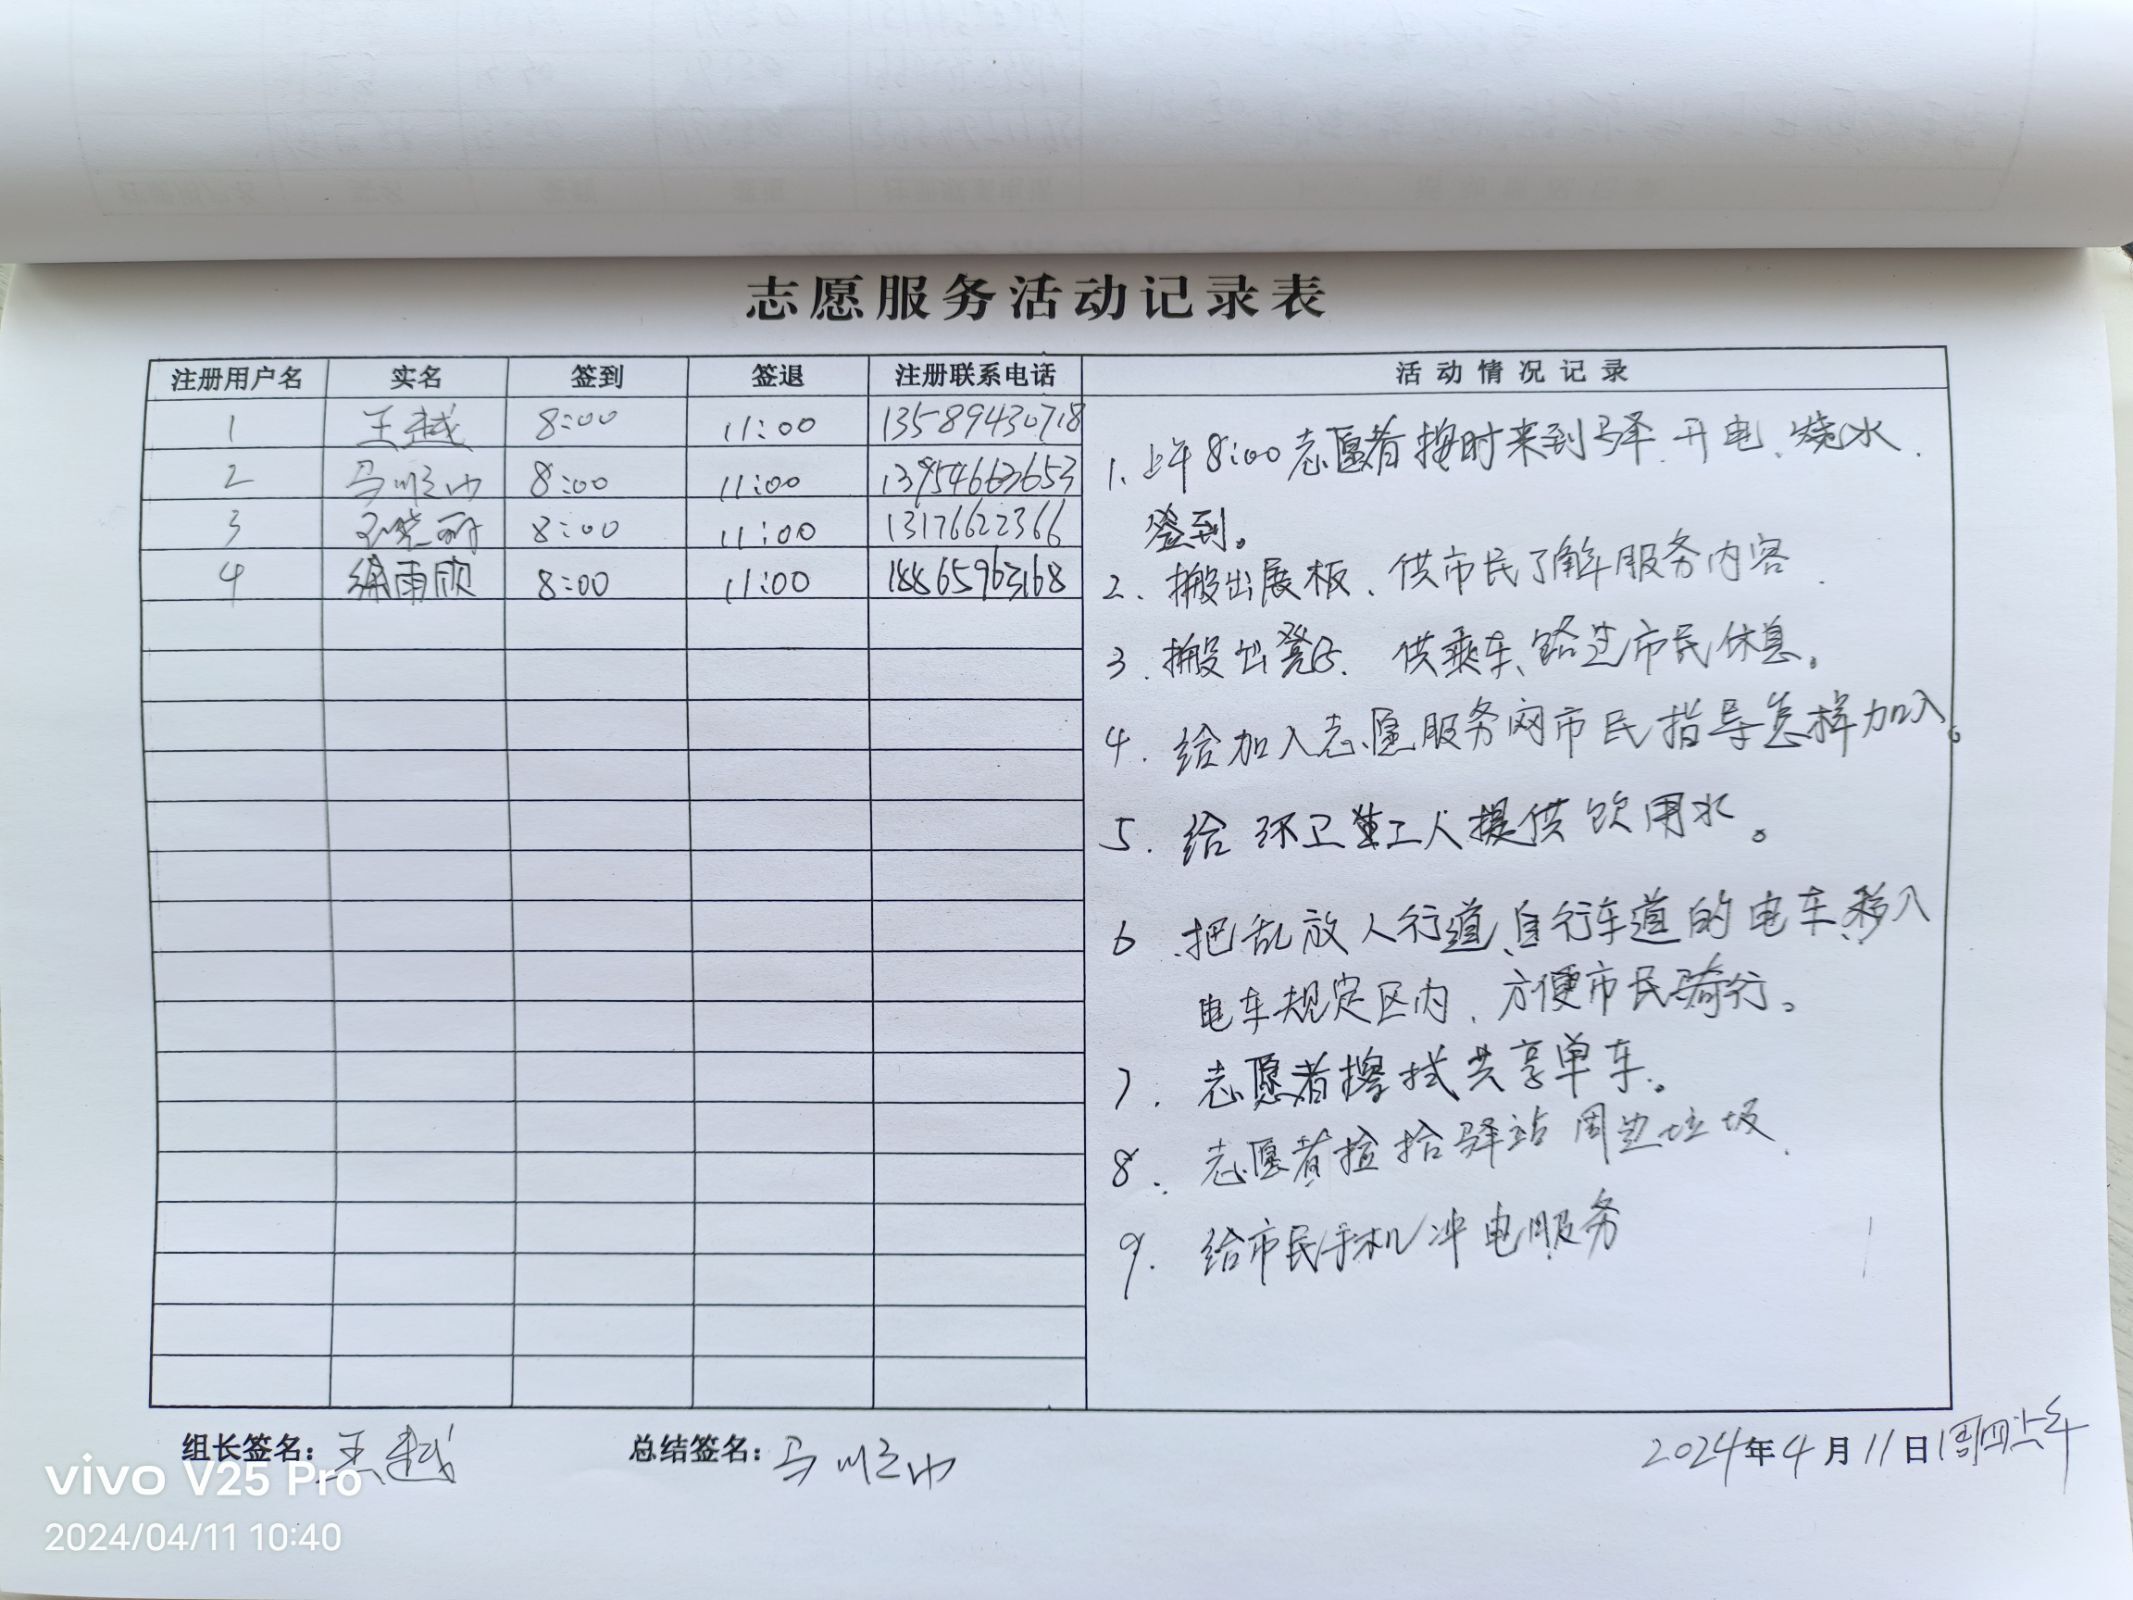 志愿服务活动记录表
注册用户名 实名 签到 签退 注册联系电话 活动情况记录
1 王越 8:00 11:00 13589430718
2 马顺山 8:00 11:00 13954663653
3 晓丽 8:00 11:00 13176622366
4 徐雨欣 8:00 11:00 18865963168
1、上午8:00志愿者按时来到驿.开电、烧水.
签到。
2、搬出展板、供市民了解服务内容.
3.搬出凳子.供乘车、路过市民休息。
4.给加入志愿服务网市民指导怎样加入。
5.给环卫工人提供饮用水。
6.把乱放人行道、自行车道的电车移入
电车规定区内,方便市民骑行。
7.志愿者擦拭共享单车。
8.志愿者捡拾驿站周边垃圾.
9.给市民手机冲电服务
组长签名:王越 总结签名:马顺山 2024年4月11日周四上午
vivo V25 Pro
2024/04/11 10:40